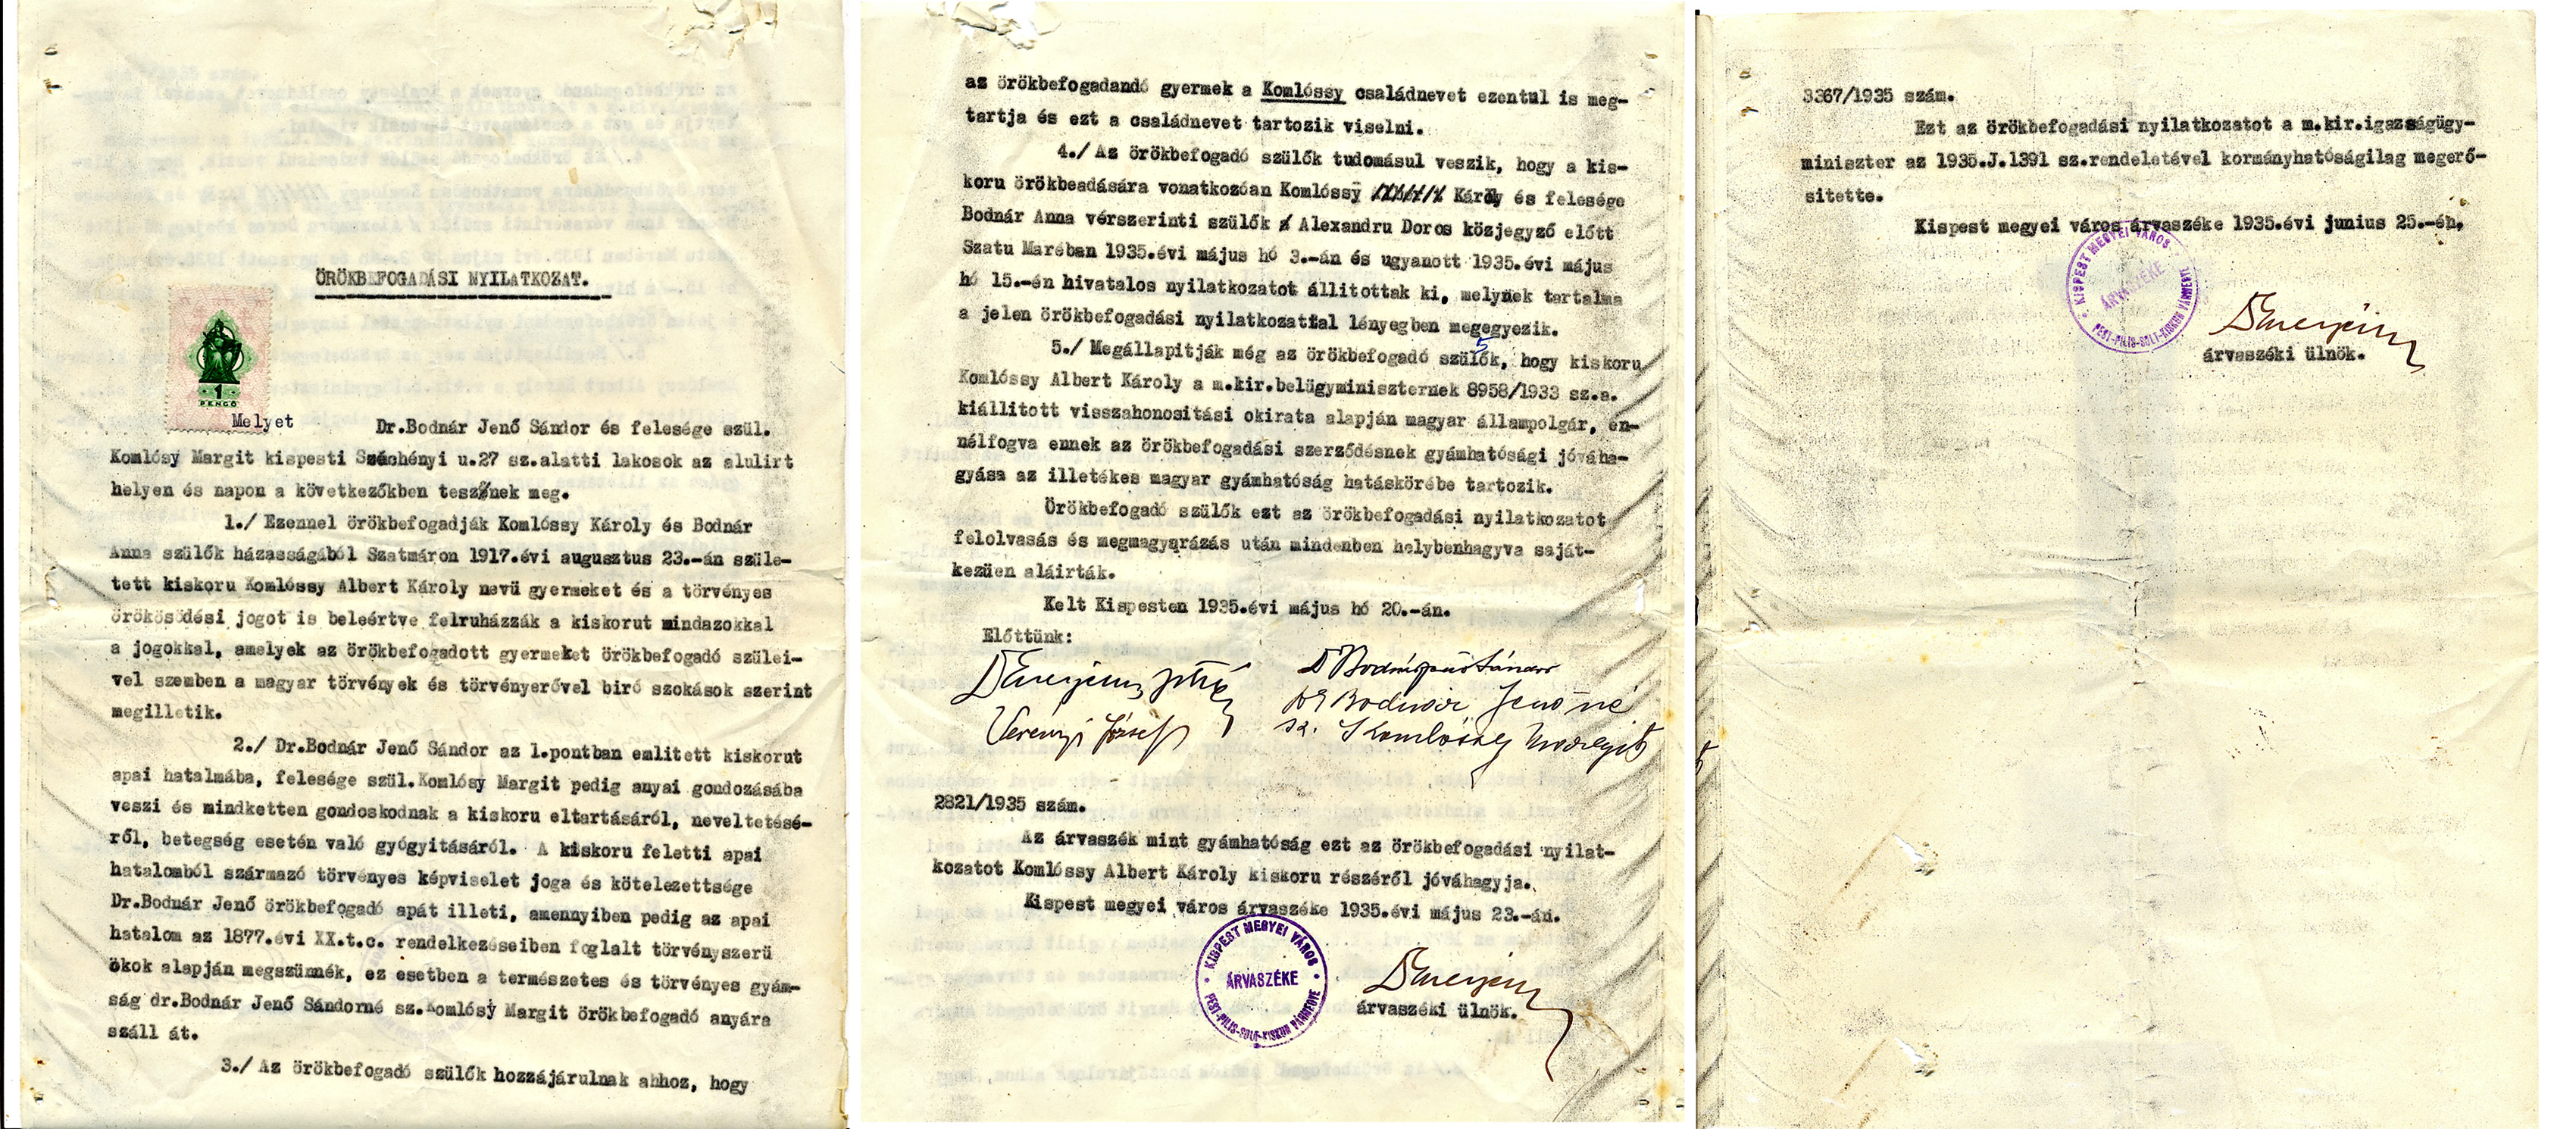 ÖRÖKBEFOGADÁSI NYILATKOZAT.
1
PENGŐ
Melyet Dr.Bodnár Jenő Sándor és felesége szül.
Komlósy Margit kispesti Széchényi u.27 sz.alatti lakosok az alulirt
helyen és napon a következőkben tesznek meg.
1./ Ezennel örökbefogadják Komlóssy Károly és Bodnár
Anna szülők házasságából Szatmáron 1917.évi augusztus 23.-án szüle-
tett kiskoru Komlóssy Albert Károly nevü gyermeket és a törvényes
örökösödési jogot is beleértve felruházzák a kiskorut mindazokkal
a jogokkal, amelyek az örökbefogadott gyermeket örökbefogadó szülei-
vel szemben a magyar törvények és törvényerővel biró szokások szerint
megilletik.
2./ Dr.Bodnár Jenő Sándor az 1.pontban emlitett kiskorut
apai hatalmába, felesége szül.Komlósy Margit pedig anyai gondozásába
veszi és mindketten gondoskodnak a kiskoru eltartásáról, neveltetésé-
ről, betegség esetén való gyógyitásáról. A kiskoru feletti apai
hatalomból származó törvényes képviselet joga és kötelezettsége
Dr.Bodnár Jenő örökbefogadó apát illeti, amennyiben pedig az apai
hatalom az 1877.évi XX.t.c. rendelkezéseiben foglalt törvényszerü
okok alapján megszünnék, ez esetben a természetes és törvényes gyám-
ság dr.Bodnár Jenő Sándorné sz.Komlósy Margit örökbefogadó anyára
száll át.
3./ Az örökbefogadó szülők hozzájárulnak ahhoz, hogy
az örökbefogadandó gyermek a Komlóssy családnevet ezentul is meg-
tartja és ezt a családnevet tartozik viselni.
4./ Az örökbefogadó szülők tudomásul veszik, hogy a kis-
koru örökbeadására vonatkozóan Komlóssy Károly és felesége
Bodnár Anna vérszerinti szülők Alexandru Doros közjegyző előtt
Szatu Maréban 1935.évi május hó 3.-án és ugyanott 1935.évi május
hó 15.-én hivatalos nyilatkozatot állitottak ki, melynek tartalma
a jelen örökbefogadási nyilatkozattal lényegben megegyezik.
5./ Megállapitják még az örökbefogadó szülők, hogy kiskoru
Komlóssy Albert Károly a m.kir.belügyminiszternek 8958/1933 sz.a.
kiállitott visszahonositási okirata alapján magyar állampolgár, en-
nélfogva ennek az örökbefogadási szerződésnek gyámhatósági jóváha-
gyása az illetékes magyar gyámhatóság hatáskörébe tartozik.
Örökbefogadó szülők ezt az örökbefogadási nyilatkozatot
felolvasás és megmagyarázás után mindenben helybenhagyva saját-
kezüen aláirták.
Kelt Kispesten 1935.évi május hó 20.-án.
Előttünk:
Dr Bodnár Jenő Sándor
Dr Bodnár Jenőné
József sz. Komlóssy Margit
2821/1935 szám.
Az árvaszék mint gyámhatóság ezt az örökbefogadási nyilat-
kozatot Komlóssy Albert Károly kiskoru részéről jóváhagyja.
Kispest megyei város árvaszéke 1935.évi május 23.-án.
KISPEST MEGYEI VÁROS
ÁRVASZÉKE
PEST-PILIS-SOLT-KISKUN VÁRMEGYE
árvaszéki ülnök.
3367/1935 szám.
Ezt az örökbefogadási nyilatkozatot a m.kir.igazságügy-
miniszter az 1935.J.1391 sz.rendeletével kormányhatóságilag megerő-
sitette.
Kispest megyei város árvaszéke 1935.évi junius 25.-én,
KISPEST MEGYEI VÁROS
ÁRVASZÉKE
PEST-PILIS-SOLT-KISKUN VÁRMEGYE
árvaszéki ülnök.